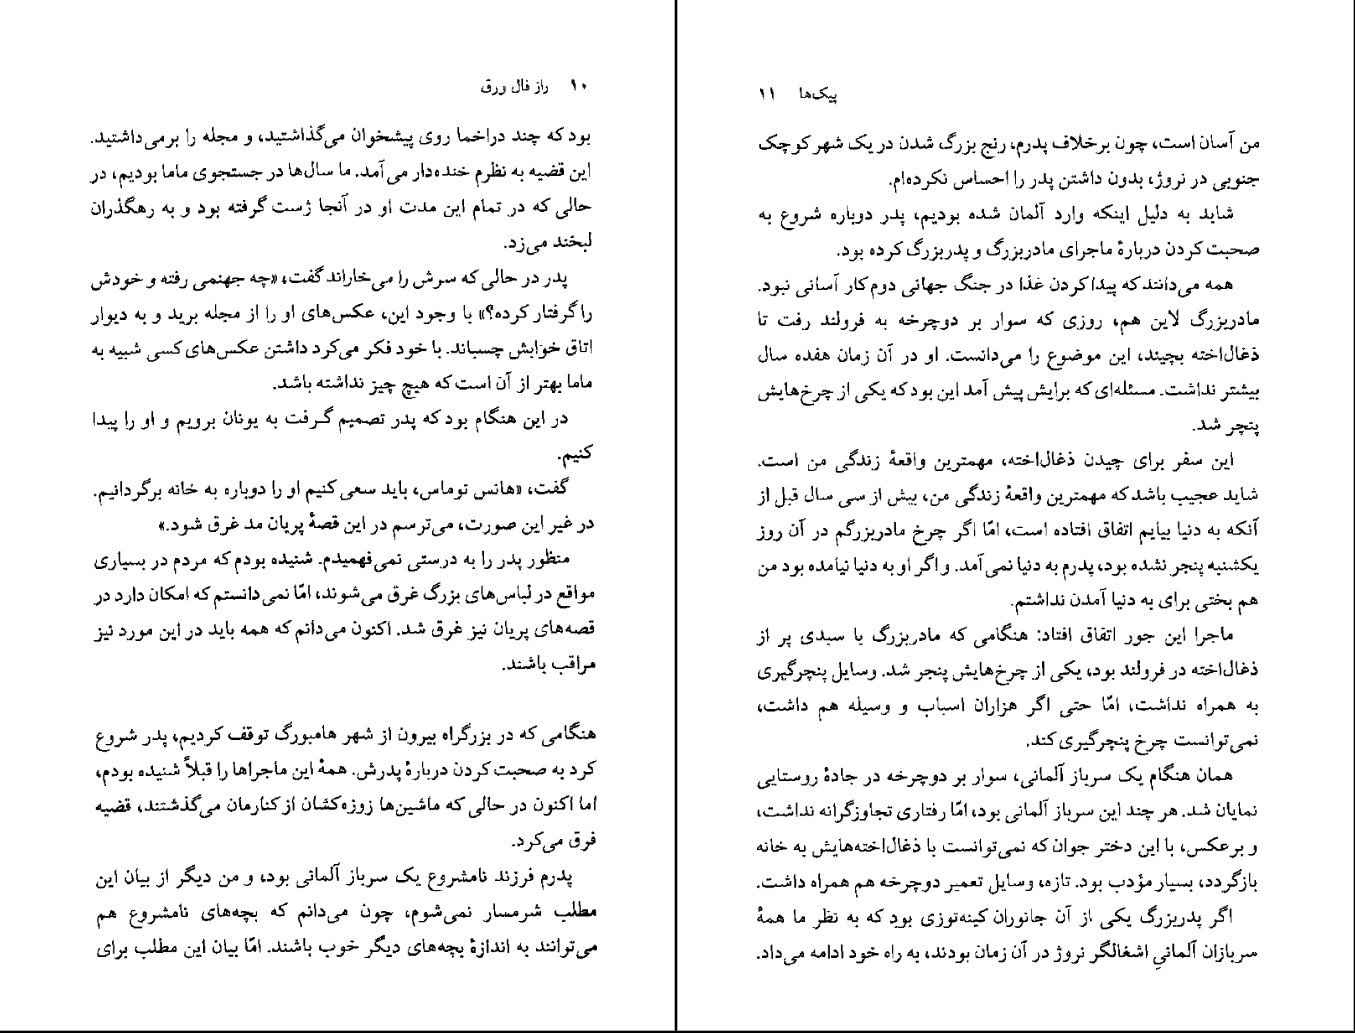 ۱۰ راز فال ورق
بود که چند دراخما روی پیشخوان می‌گذاشتید، و مجله را برمی‌داشتید.
این قضیه به نظرم خنده‌دار می‌آمد. ما سال‌ها در جستجوی ماما بودیم، در
حالی که در تمام این مدت او در آنجا ژست گرفته بود و به رهگذران
لبخند می‌زد.
پدر در حالی که سرش را می‌خاراند گفت، «چه جهنمی رفته و خودش
را گرفتار کرده؟» با وجود این، عکس‌های او را از مجله برید و به دیوار
اتاق خوابش چسباند. با خود فکر می‌کرد داشتن عکس‌های کسی شبیه به
ماما بهتر از آن است که هیچ چیز نداشته باشد.
در این هنگام بود که پدر تصمیم گرفت به یونان برویم و او را پیدا
کنیم.
گفت، «هانس توماس، باید سعی کنیم او را دوباره به خانه برگردانیم.
در غیر این صورت، می‌ترسم در این قصهٔ پریان مد غرق شود.»
منظور پدر را به درستی نمی‌فهمیدم. شنیده بودم که مردم در بسیاری
مواقع در لباس‌های بزرگ غرق می‌شوند، امّا نمی‌دانستم که امکان دارد در
قصه‌های پریان نیز غرق شد. اکنون می‌دانم که همه باید در این مورد نیز
مراقب باشند.
هنگامی که در بزرگراه بیرون از شهر هامبورگ توقف کردیم، پدر شروع
کرد به صحبت کردن دربارهٔ پدرش. همهٔ این ماجراها را قبلاً شنیده بودم،
اما اکنون در حالی که ماشین‌ها زوزه‌کشان از کنارمان می‌گذشتند، قضیه
فرق می‌کرد.
پدرم فرزند نامشروع یک سرباز آلمانی بود، و من دیگر از بیان این
مطلب شرمسار نمی‌شوم، چون می‌دانم که بچه‌های نامشروع هم
می‌توانند به اندازهٔ بچه‌های دیگر خوب باشند. امّا بیان این مطلب برای
پیک‌ها ۱۱
من آسان است، چون برخلاف پدرم، رنج بزرگ شدن در یک شهر کوچک
جنوبی در نروژ، بدون داشتن پدر را احساس نکرده‌ام.
شاید به دلیل اینکه وارد آلمان شده بودیم، پدر دوباره شروع به
صحبت کردن دربارهٔ ماجرای مادربزرگ و پدربزرگ کرده بود.
همه می‌دانند که پیدا کردن غذا در جنگ جهانی دوم کار آسانی نبود.
مادربزرگ لاین هم، روزی که سوار بر دوچرخه به فرولند رفت تا
ذغال‌اخته بچیند، این موضوع را می‌دانست. او در آن زمان هفده سال
بیشتر نداشت. مسئله‌ای که برایش پیش آمد این بود که یکی از چرخ‌هایش
پنچر شد.
این سفر برای چیدن ذغال‌اخته، مهمترین واقعهٔ زندگی من است.
شاید عجیب باشد که مهمترین واقعهٔ زندگی من، بیش از سی سال قبل از
آنکه به دنیا بیایم اتفاق افتاده است، امّا اگر چرخ مادربزرگم در آن روز
یکشنبه پنچر نشده بود، پدرم به دنیا نمی‌آمد. و اگر او به دنیا نیامده بود من
هم بختی برای به دنیا آمدن نداشتم.
ماجرا این جور اتفاق افتاد: هنگامی که مادربزرگ با سبدی پر از
ذغال‌اخته در فرولند بود، یکی از چرخ‌هایش پنچر شد. وسایل پنچرگیری
به همراه نداشت، امّا حتی اگر هزاران اسباب و وسیله هم داشت،
نمی‌توانست چرخ پنچرگیری کند.
همان هنگام یک سرباز آلمانی، سوار بر دوچرخه در جادهٔ روستایی
نمایان شد. هر چند این سرباز آلمانی بود، امّا رفتاری تجاوزگرانه نداشت،
و برعکس، با این دختر جوان که نمی‌توانست با ذغال‌اخته‌هایش به خانه
بازگردد، بسیار مؤدب بود. تازه، وسایل تعمیر دوچرخه هم همراه داشت.
اگر پدربزرگ یکی از آن جانوران کینه‌توزی بود که به نظر ما همهٔ
سربازان آلمانیِ اشغالگر نروژ در آن زمان بودند، به راه خود ادامه می‌داد.